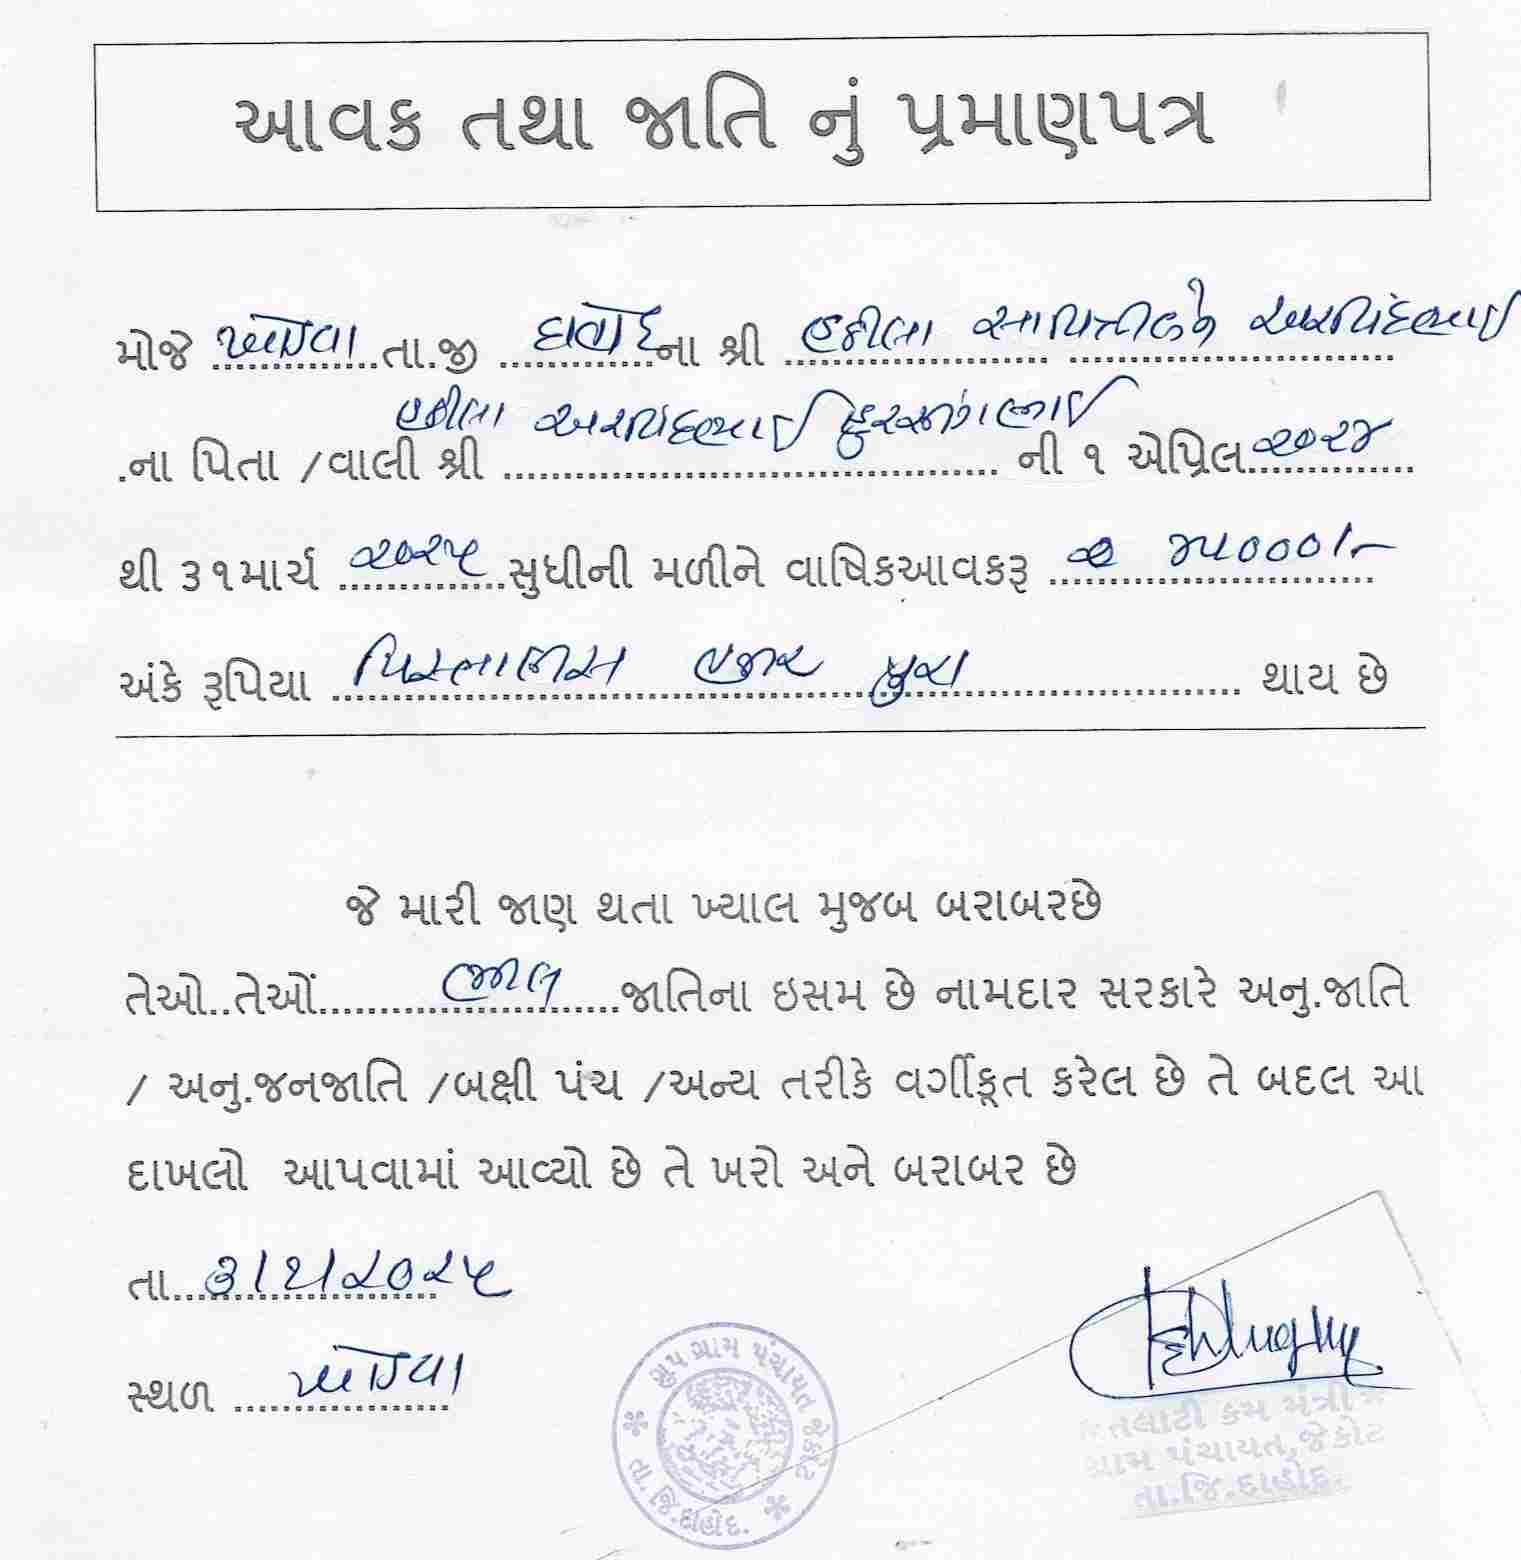 આવક તથા જાતિ નું પ્રમાણપત્ર
મોજે ............... તા.જી દાહોદ ના શ્રી હઠીલા સાવિત્રીબેન અરવિંદભાઈ
હઠીલા અરવિંદભાઈ હુરસીંગભાઈ
.ના પિતા /વાલી શ્રી ................................ ની ૧ એપ્રિલ ૨૦૨૪
થી ૩૧માર્ચ ૨૦૨૫ સુધીની મળીને વાષિકઆવકરૂ ૪૫૦૦૦/-
અંકે રૂપિયા પિસ્તાલીસ હજાર પુરા થાય છે
જે મારી જાણ થતા ખ્યાલ મુજબ બરાબરછે
તેઓ..તેઓં ભીલ જાતિના ઇસમ છે નામદાર સરકારે અનુ.જાતિ
/ અનુ.જનજાતિ /બક્ષી પંચ /અન્ય તરીકે વર્ગીકૃત કરેલ છે તે બદલ આ
દાખલો આપવામાં આવ્યો છે તે ખરો અને બરાબર છે
તા. ૩/૨/૨૦૨૫
સ્થળ ..................
ગૃપ ગ્રામ પંચાયત જેકોટ
તા.જિ.દાહોદ.
તલાટી કમ મંત્રી
ગ્રામ પંચાયત,જેકોટ
તા.જિ.દાહોદ.